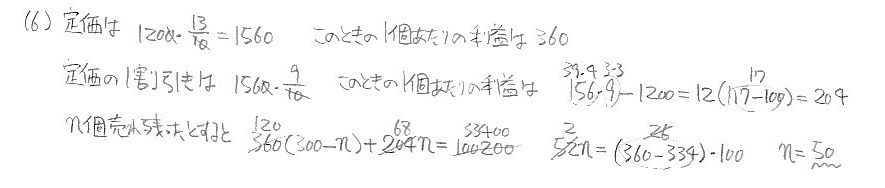 (6) 定価は 1200・13/10=1560 このときの1個あたりの利益は 360
定価の1割引きは 1560・9/10 このときの1個あたりの利益は 156・9-1200=12(117-100)=204
39・4 3・3 17
n個売れ残ったとすると 360(300-n)+204n=100200 52n=(360-334)・100 n=50
120 68 33400 2 26